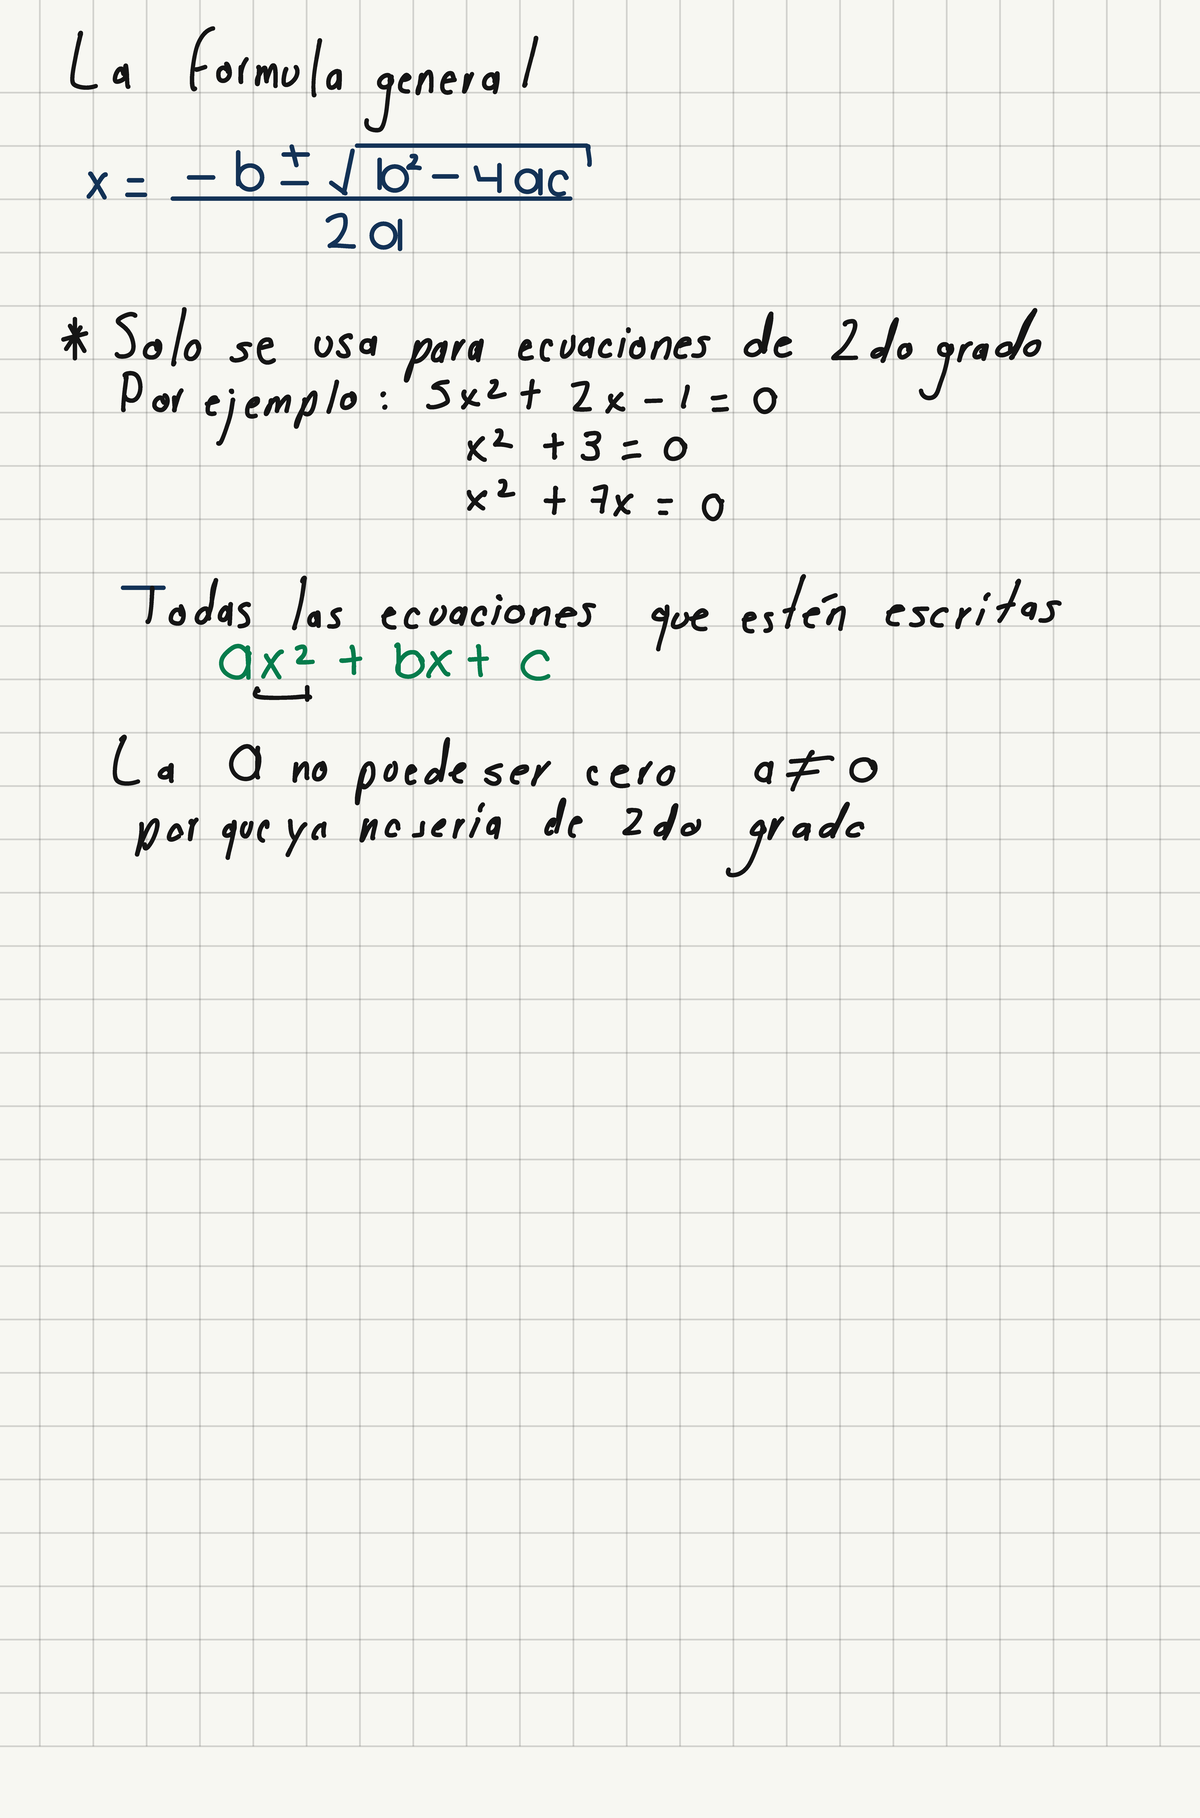 La formula general
x = -b ± √(b² - 4ac) / 2a
* Solo se usa para ecuaciones de 2do grado
Por ejemplo: 5x² + 2x - 1 = 0
x² + 3 = 0
x² + 7x = 0
Todas las ecuaciones que estén escritas
ax² + bx + c
La a no puede ser cero a ≠ 0
por que ya no seria de 2do grado